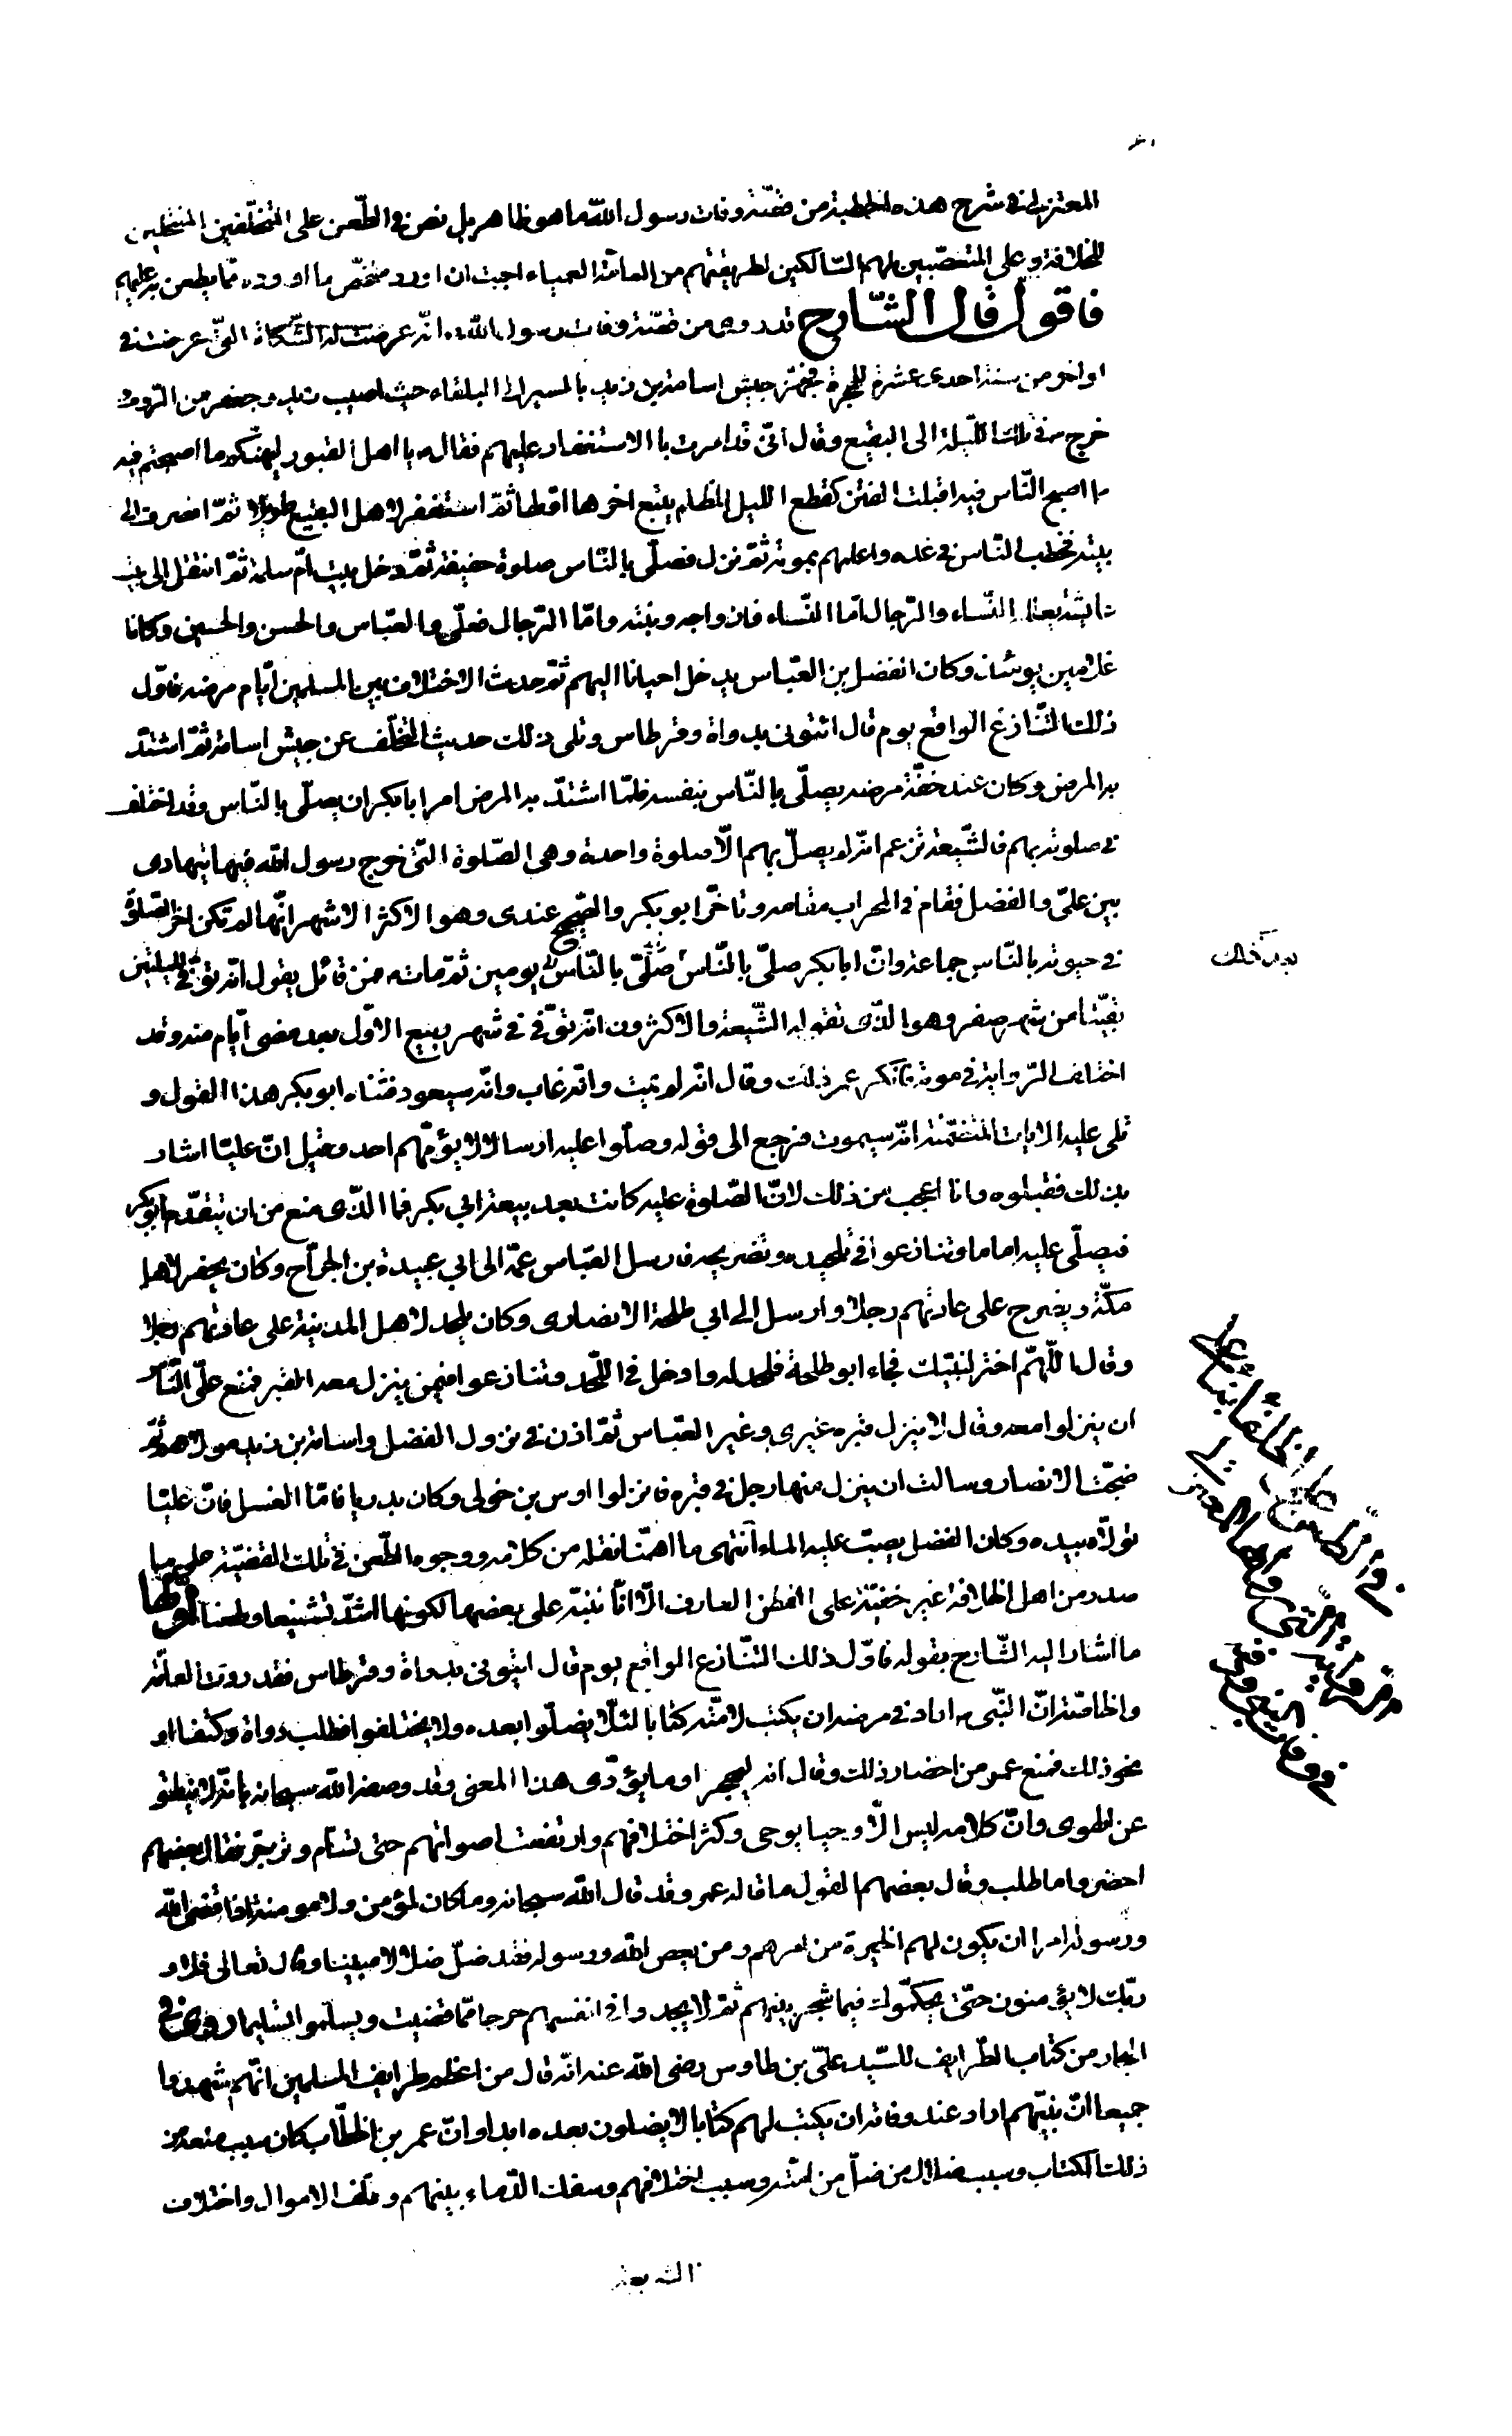 المعتزلى فى شرح هذه الخطبة من قصّة وفات رسول الله ما هو ظاهر بل نص فى الطّعن على المتخلّفين المنتحلين
للخلافة وعلى المتعصّبين لهم السّالكين لطريقتهم من العامّة العمياء احببت ان اورد ملخّص ما اورده ممّا يطعن به عليهم
فاقول قال الشّارح قد روى من قصّة وفات رسول الله انّه عرضت له الشّكاة الّتى عرضت فى
اواخر من سنة احدى عشرة للهجرة فجهّز جيش اسامة بن زيد بالمسير الى البلقاء حيث اصيب زيد وجعفر من الرّوم و
خرج فى تلك اللّيلة الى البقيع وقال انّى قد امرت با الاستغفار عليهم فقال يا اهل القبور ليهنكم ما اصبحتم فيه
ما اصبح النّاس فيه اقبلت الفتن كقطع الليل المظلم يتبع اخرها اوّلها ثمّ استغفر لاهل البقيع طويلا ثمّ انصرف الى
بيته فخطب النّاس فى غده واعلمهم بموته ثمّ نزل فصلّى بالنّاس صلوة خفيفة ثمّ دخل بيت امّ سلمة ثمّ انتقل الى بيت
عايشة يعلله النّساء والرّجال امّا النّساء فازواجه وبنته وامّا الرّجال فعلىّ والعبّاس والحسن والحسين وكانا
غلامين يومئذ وكان الفضل بن العبّاس يدخل احيانا اليهم ثمّ حدث الاختلاف بين المسلمين ايّام مرضه فاوّل
ذلك التّنازع الواقع يوم قال ائتونى بدواة وقرطاس وتلى ذلك حديث التخلّف عن جيش اسامة ثمّ اشتدّ
به المرض وكان عند خفّة مرضه يصلّى بالنّاس بنفسه فلمّا اشتدّ به المرض امر ابا بكر ان يصلّى بالنّاس وقد اختلف
فى صلوته بهم فالشّيعة تزعم انّه لم يصلّ بهم الّا صلوة واحدة وهى الصّلوة الّتى خرج رسول الله فيها يتهادى
بين علىّ والفضل فقام فى المحراب مقامه وتاخّر ابو بكر والصّحيح عندى وهو الاكثر الاشهر انّها لم تكن اخر الصّلوة
فى حيوته بالنّاس جماعة وانّ ابا بكر صلّى بالنّاس صلّى بالنّاس يومين ثمّ مات فمن قائل يقول انّه توفّى لليلتين
بقيتا من شهر صفر وهو الّذى تقوله الشّيعة والاكثرون انّه توفّى فى شهر ربيع الاوّل بعد مضى ايّام منه وقد
اختلف الرّواية فى موته فانكر عمر ذلك وقال انّه لم يمت وانّه غاب وانّه سيعود فثناه ابو بكر هذا القول و
تلى عليه الايات المتضمّنة انّه سيموت فرجع الى قوله وصلّوا عليه ارسالا لا يؤمّهم احد وقيل انّ عليّا اشار
بذلك فقبلوه وانا اعجب من ذلك لانّ الصّلوة عليه كانت بعد بيعة ابى بكر فما الّذى منع من ان يتقدّم ابو بكر
فيصلّى عليه اماما وتنازعوا فى تلحيده وتضريحه فارسل العبّاس عمّه الى ابى عبيدة بن الجرّاح وكان يحفر لاهل
مكّة ويضرح على عادتهم رجلا وارسل الى ابى طلحة الانصارى وكان يلحد لاهل المدينة على عادتهم رجلا
وقال اللّهمّ اختر لنبيّك فجاء ابو طلحة فلحد له وادخل فى اللّحد وتنازعوا فيمن ينزل معه القبر فمنع علىّ النّاس
ان ينزلوا معه وقال لا ينزل قبره غيرى وغير العبّاس ثمّ اذن فى نزول الفضل واسامة بن زيد مولاهم ثمّ
ضجّت الانصار وسالت ان ينزل منها رجل فى قبره فانزلوا اوس بن خولى وكان بدريا فامّا الغسل فانّ عليّا
تولّاه بيده وكان الفضل يصبّ عليه الماء انتهى ما اهمّنا نقله من كلامه ووجوه الطّعن فى تلك القضيّة على ما
صدر من اهل الخلافة غير خفيّة على الفطن العارف الّا انّا ننبّه على بعضها لكونها اشدّ تشنيعا وطعنا اوّلها
ما اشار اليه الشّارح بقوله فاوّل ذلك التّنازع الواقع يوم قال ايتونى بدواة وقرطاس فقد روت العامّة
والخاصّة انّ النّبى اراد فى مرضه ان يكتب لامّته كتابا لئلّا يضلّوا بعده ولا يختلفوا فطلب دواة وكتفا او
نحو ذلك فمنع عمر من احضار ذلك وقال انه ليهجر او ما يؤدّى هذا المعنى وقد وصفه الله سبحانه بانّه لا ينطق
عن الهوى وانّ كلامه ليس الّا وحيا يوحى وكثر اختلافهم وارتفعت اصواتهم حتى تسأم وتزبّر فقال بعضهم
احضروا ما طلب وقال بعضهم القول ما قاله عمر وقد قال الله سبحانه وما كان لمؤمن ولا مومنة اذا قضى الله
ورسوله امرا ان يكون لهم الخيرة من امرهم ومن يعص الله ورسوله فقد ضلّ ضلالا مبينا وقال تعالى فلا و
ربّك لا يؤمنون حتّى يحكّموك فيما شجر بينهم ثمّ لا يجدوا فى انفسهم حرجا ممّا قضيت ويسلّموا تسليما وفى
البحار من كتاب الطّرايف للسّيد علىّ بن طاوس رضى الله عنه انّه قال من اعظم طرايف المسلمين انّهم شهدوا
جميعا انّ نبيّهم اراد عند وفاته ان يكتب لهم كتابا لا يضلون بعده ابدا وانّ عمر بن الخطّاب كان سبب منعه من
ذلك الكتاب وسبب ضلال من ضلّ من امّته وسبب اختلافهم وسفك الدّماء بينهم وتلف الاموال واختلاف
بعد ذلك